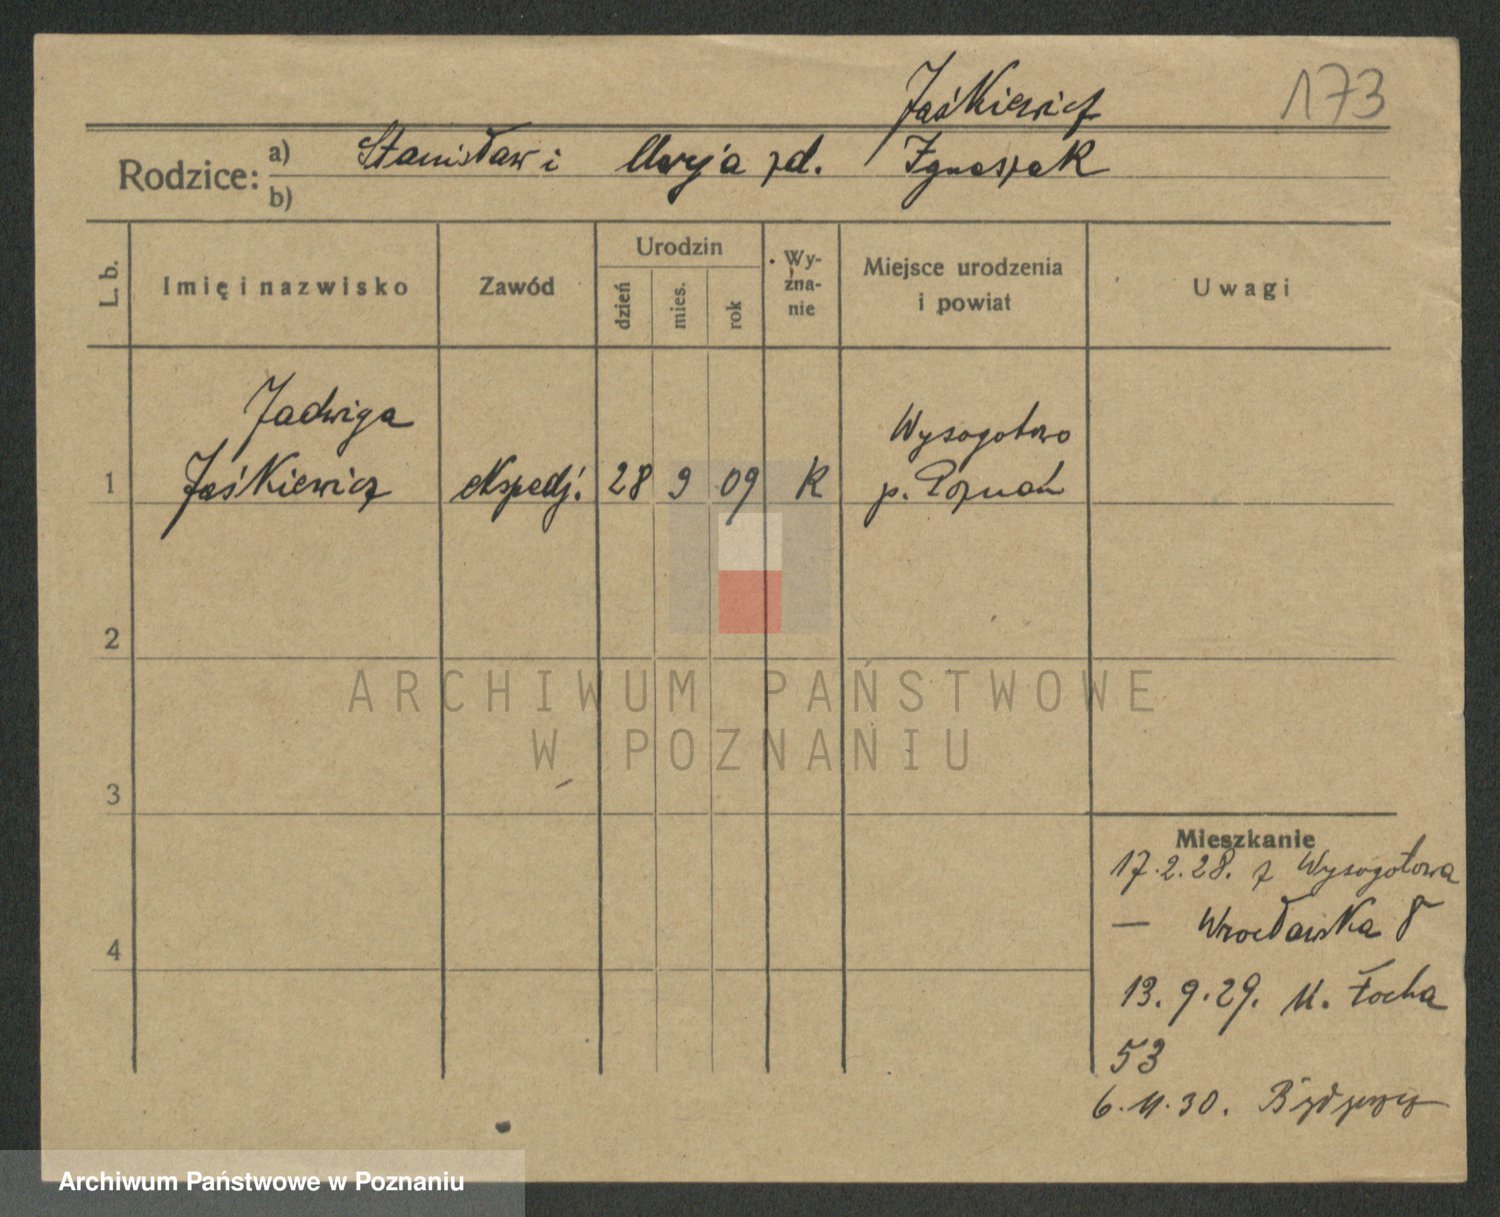 Jaśkiewicz
173
Rodzice:
a) Stanisław i Marja zd. Ignaszak
b)
L. b.
Imię i nazwisko
Zawód
Urodzin
dzień
mies.
rok
Wy-
zna-
nie
Miejsce urodzenia
i powiat
Uwagi
Jadwiga
Wysogotowo
1 Jaśkiewicz ekspedj. 28 9 09 K p. Poznań
2
ARCHIWUM PAŃSTWOWE
W POZNANIU
3
Mieszkanie
17.2.28. z Wysogotowa
— Wrocławska 8
4
13.9.29. M. Focha
53
6.11.30.
Archiwum Państwowe w Poznaniu